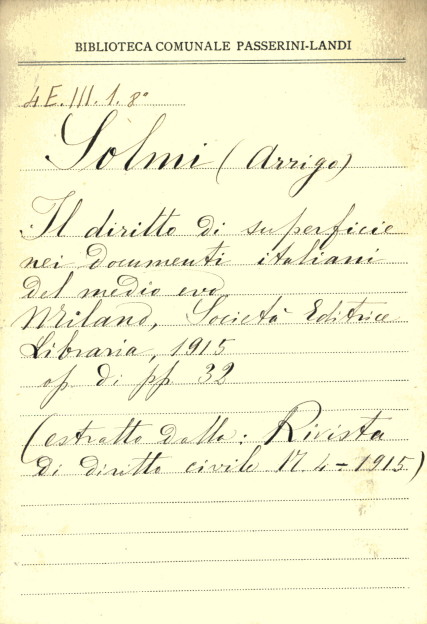 BIBLIOTECA COMUNALE PASSERINI-LANDI
4E.III.1.8°
Solmi (Arrigo)
Il diritto di superficie
nei documenti italiani
del medio evo
Milano, Società Editrice
Libraria, 1915
op di pp 32
(estratto dalla: Rivista
di diritto civile N. 4 - 1915)